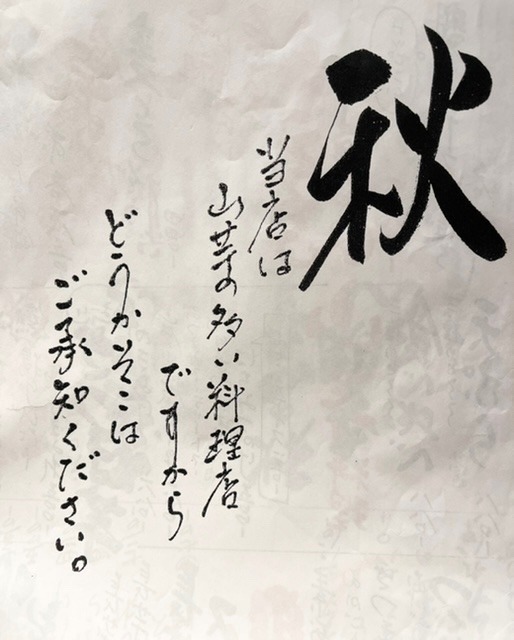 秋
当店は
山菜の多い料理店
ですから
どうかそこは
ご承知ください。